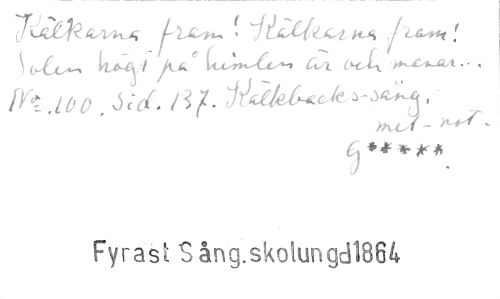 Kälkarna fram! Kälkarna fram!
Solen högt på himlen är och menar...
No. 100. Sid. 137. Kälkbacks-sång.
met-not.
G*****.
Fyrast Sång.skolungd1864